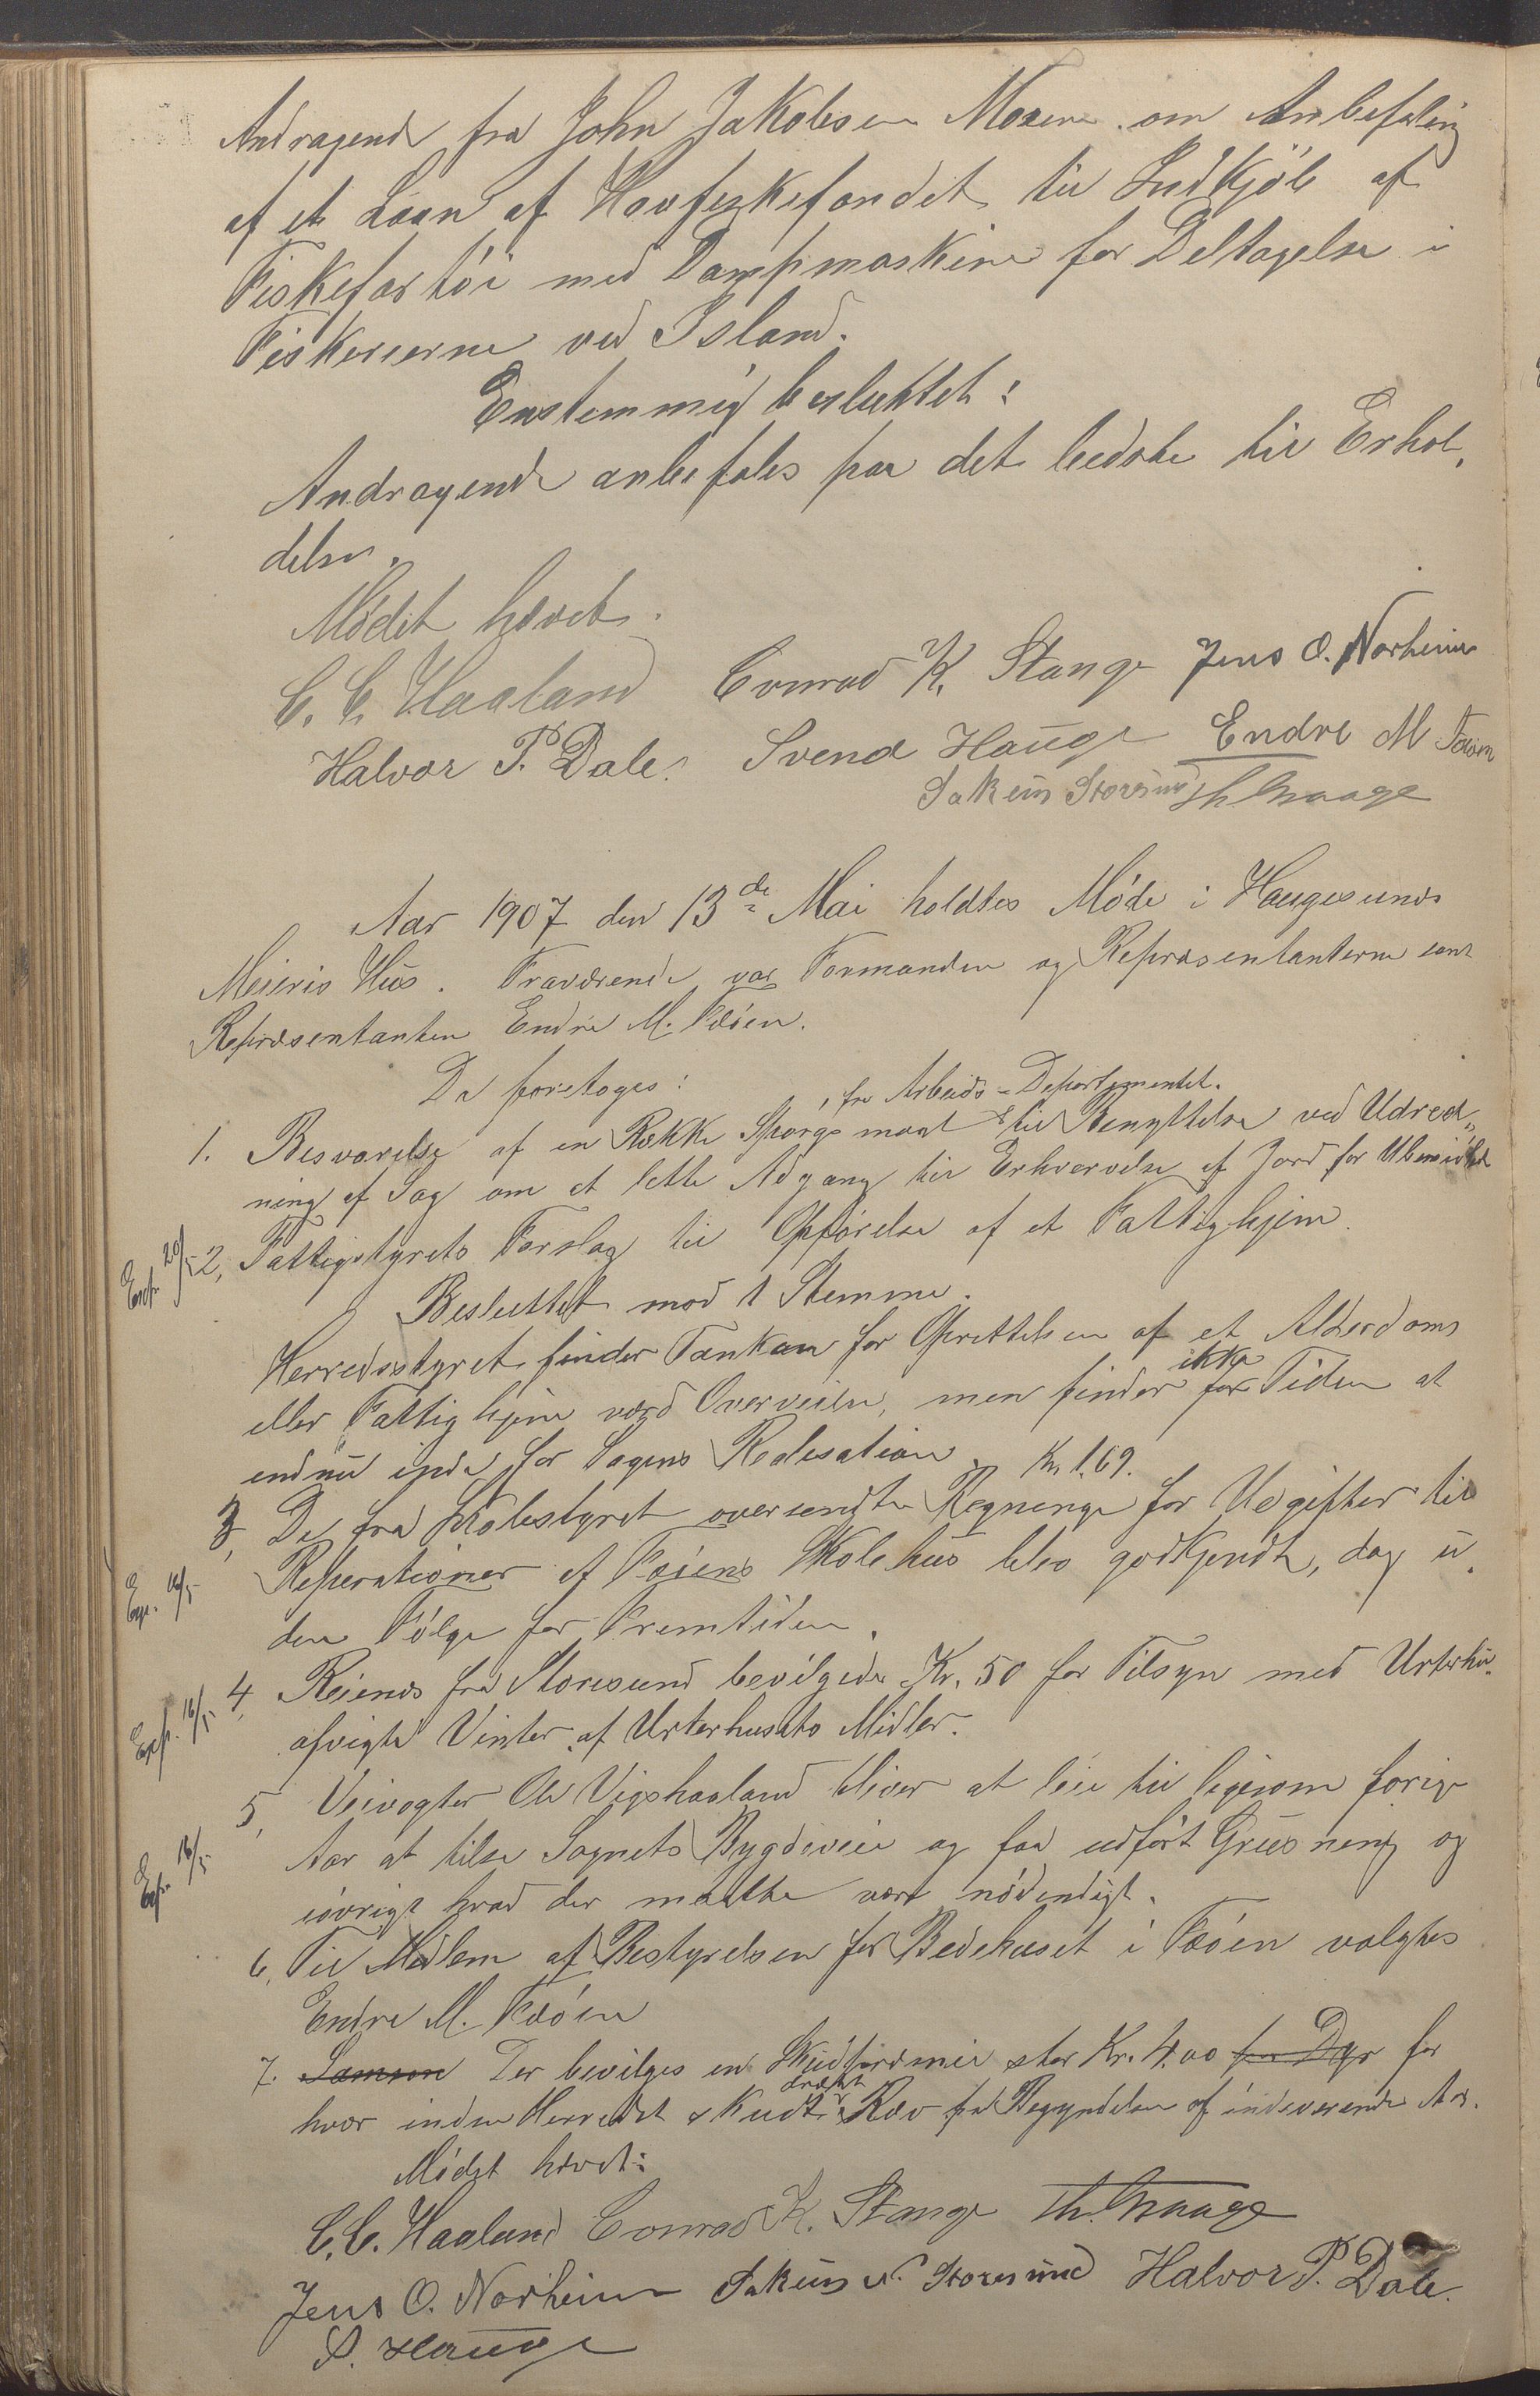 Andragende fra John Jakobsen om Anbefaling
af et Laan af Havfiskefondet til Indkjöb af
Fiskefartöi med Dampmaskine for Deltagelse i
Fiskerierne ved Island.
Enstemmig besluttet:
Andragende anbefales paa det bedste til Erhol,
delse.
Mödet hævet.
C. C. Haaland Conrad K. Stange Jens O. Norheim
Halvor P. Dale. Svend Hauge Endre M Fæøen
Sakeus Storesund
Aar 1907 den 13de Mai holdtes Möde i Haugesunds
Meieris Hus. Fraværende var Formanden og Repræsentanterne samt
Repræsentanten Endre M. Fæöen.
Da foretoges:
, fra Arbeids-Departementet.
1. Besvarelse af en Række Spörgsmaal til Benyttelse ved Udred„
ning af Sag om et lette Adgang til Erhvervelse af Jord for Ubemidlet
Exp. 20/5 2, Fattigstyrets Forslag til Opförelse af et Fattighjem.
Besluttet mod 1 Stemme.
Herredsstyret finder Tanken for Oprettelsen af et Alderdoms
ikke
eller Fattighjem værd Overveielse, men finder for Tiden at
endnu inde for Sagens Realisation.
Kr. 1,69.
3, De fra Skolestyret oversendte Regninge for Udgifter til
Exp. 16/5 Reperationer af Föiens Skolehus blev godkjendt, dog u„
den Fölge for Fremtiden.
Exp. 16/5 4, Reiends fra Storesund bevilgedes Kr. 50 for Tilsyn med Urterhu„
afvigte Vinter af Urterhusets Midler.
5, Veivogter Ole Vigshaaland bliver at leie til ligesom forige
Exp. 16/5 Aar at tilse Sognets Bygdeveie og faa udfört Grusning og
iövrigt hvad der maatte være nödvendigt.
6, Til Medlem af Bestyrelsen for Bedehuset i Fæöen valgtes
Endre M. Fæöen
7. Samson Der bevilges en Skudpræmie stor Kr. 4.00 for Dyr for
dræbt
hver inden Herredet skudt Ræv fra Begyndelsen af indeværende Aar.
Mödet hævet:
C. C. Haaland Conrad K. Stange
Jens O. Norheim Sakeus N. Storesund Halvor P. Dale.
S. Hauge